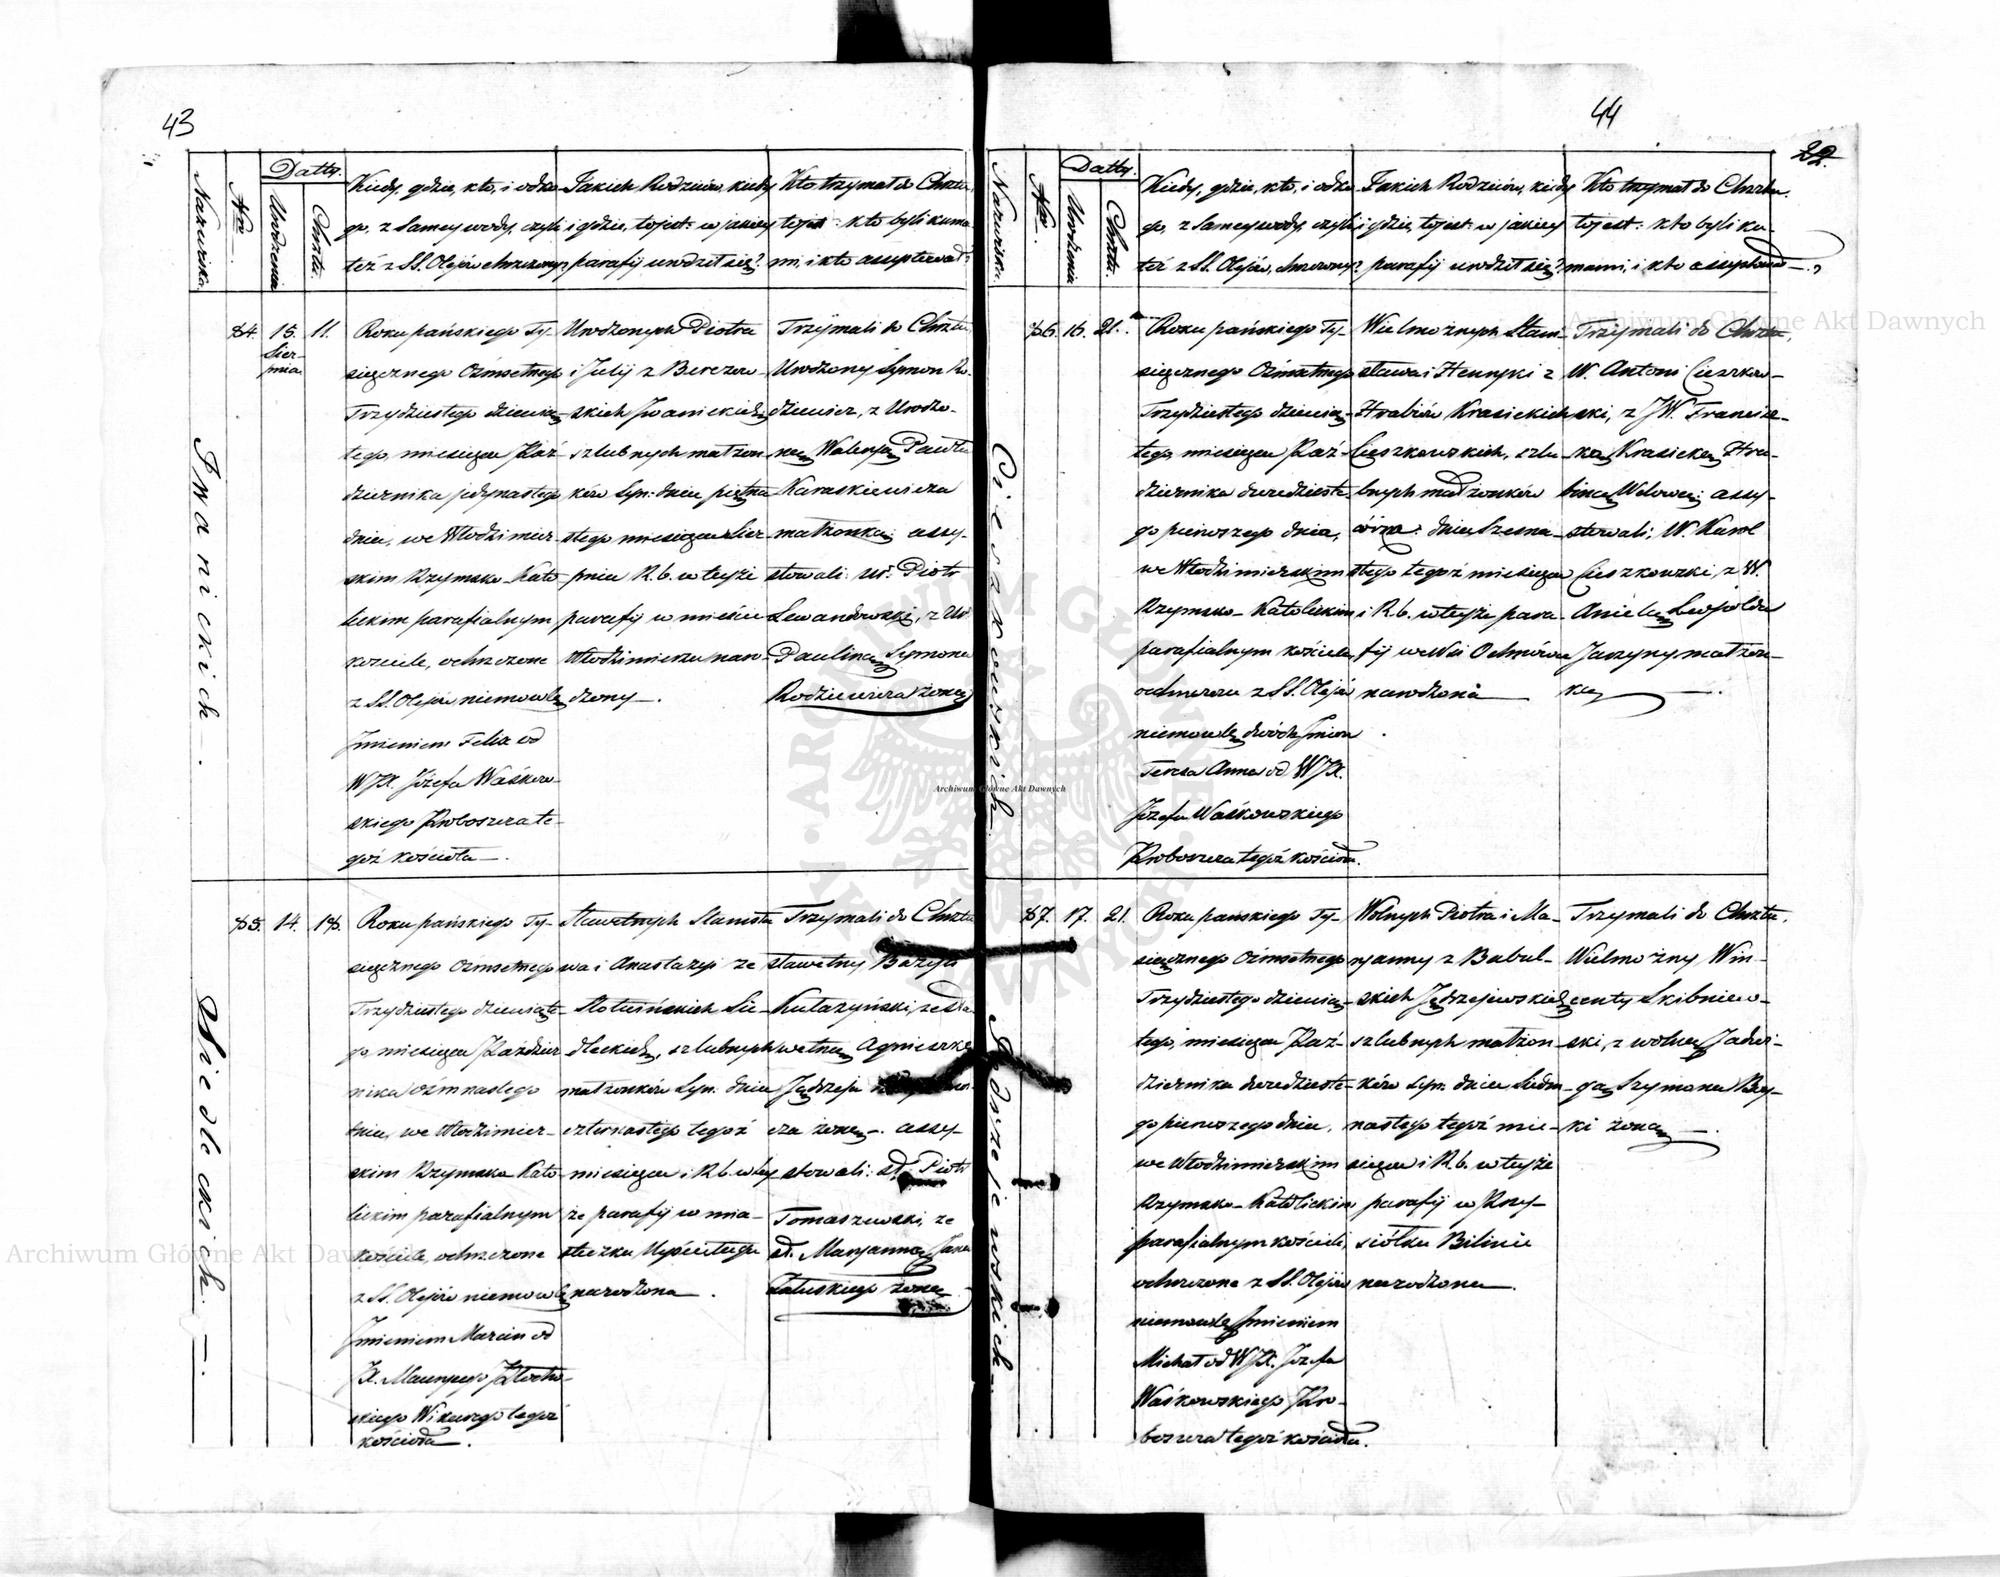 43
Datty.
Nazwiska.
Nro
Urodzenia
Chrztu.
Kiedy, gdzie, kto, i od ko-
go, z Samey wody, czyli
też z SS. Olejów chrzczony?
Jakich Rodziców, kiedy
i gdzie, to jest: w jakiey
parafij urodził się?
Kto trzymał do Chrztu,
to jest: kto byli kuma-
mi, i kto assystował?
Iwanickich —.
84. 15. 11.
Sier-
pnia
Roku pańskiego Ty-
siącznego Ośmsetnego
Trzydziestego dziewią-
tego, miesiąca Paź-
dziernika jedynastego
dnia, we Włodzimier-
skim Rzymsko-Kato-
lickim parafialnym
kościele, ochrzczone
z SS. Olejów niemowlę
Imieniem Felix od
WJX. Józefa Waśkow-
skiego Proboszcza te-
goż kościoła —.
Urodzonych Piotra
i Julij z Berezow-
skich Iwanickich
szlubnych małżon-
ków Syn: dnia piętna-
stego miesiąca Sier-
pnia R. b. w teyże
parafij w mieście
Włodzimierzu naro-
dzony —.
Trzymali do Chrztu,
Urodzony Symon Ro-
dziewicz, z Urodzo-
ną Waleryą Pawła
Karaskiewicza
małżonką; assy-
stowali: Ur. Piotr
Lewandowski, z Ur.
Pauliną Symona
Rodziewicza żoną
Siedleckich. —.
85. 14. 18.
Roku pańskiego Ty-
siącznego Ośmsetnego
Trzydziestego dziewiąte-
go, miesiąca Paździer-
nika Ośmnastego
dnia, we Włodzimier-
skim Rzymsko Kato-
lickim parafialnym
kościele, ochrzczone
z SS. Olejów niemowlę
Imieniem Marcin od
X.
skiego Wikarego tegoż
kościoła —.
Sławetnych Stanisła-
wa i Anastazyi ze
Sie-
dleckich, szlubnych
małżonków Syn: dnia
czternastego tegoż
miesiąca i R. b. w tey
że parafij w mia-
steczku Uściługu
narodzona .
Trzymali do Chrztu
sławetny Bazyli
ze Sła-
wetną Agnieszką
Jędrzeja
cza żoną —. assy-
stowali: sł. Piotr
Tomaszewski, ze
sł. Maryanną Jana
Załuskiego żoną
44
22
Datty.
Nazwiska.
Nro.
Urodzenia
Chrztu.
Kiedy, gdzie, kto, i od ko-
go, z Samey wody, czyli
też z SS. Olejów, chrzczony?
Jakich Rodziców, kiedy
i gdzie, to jest: w jakiey
parafij urodził się?
Kto trzymał do Chrztu.
to jest: kto byli ku-
mami, i kto assystował —?
Cieszkowskich
86. 16. 21.
Roku pańskiego Ty-
siącznego Ośmsetnego
Trzydziestego dziewią-
tego, miesiąca Paź-
dziernika dwudzieste-
go pierwszego dnia,
we Włodzimierskim
Rzymsko-Katolickim
parafialnym kościele,
ochrzczona z SS. Olejów
niemowlę dwóch Imion
Teresa Anna od WJX.
Józefa Waśkowskiego
Proboszcza tegoż kościoła.
Wielmożnych Stani-
sława i Henryki z
Hrabiów Krasickich
Cieszkowskich, szlu-
bnych małżonków
córka: dnia Szesna-
stego tegoż miesiąca
i R. b. w teyże para-
fij we Wsi Ochnówce
narodzona —
Trzymali do Chrztu,
W. Antoni Cieszkow-
ski, z JW. Francisz-
ką Krasicką Hra-
biną Wdową; assy-
stowali: W. Karol
Cieszkowski, z W.
Anielą Leopolda
Jaczyny małżon-
ką —.
Jędrzejewskich —.
87. 17. 21.
Roku pańskiego Ty-
siącznego Ośmsetnego
Trzydziestego dziewią-
tego, miesiąca Paź-
dziernika dwudzieste-
go pierwszego dnia,
we Włodzimierskim
Rzymsko-Katolickim
parafialnym kościele,
ochrzczone z SS. Olejów
niemowlę Imieniem
Michał od WJX. Józefa
Waśkowskiego Pro-
boszcza tegoż kościoła.
Wolnych Piotra i Ma-
ryanny z Babul-
skich Jędrzejewskich
szlubnych małżon-
ków syn: dnia Siedm-
nastego tegoż mie-
siąca i R. b. w teyże
parafij w Przy-
siółku Bilinie
narodzona —.
Trzymali do Chrztu,
Wielmożny Win-
centy Skibniew-
ski, z wolną Jadwi-
gą Szymona
ki żoną —.
Archiwum Główne Akt Dawnych
Archiwum Główne Akt Dawnych
Archiwum Główne Akt Dawnych